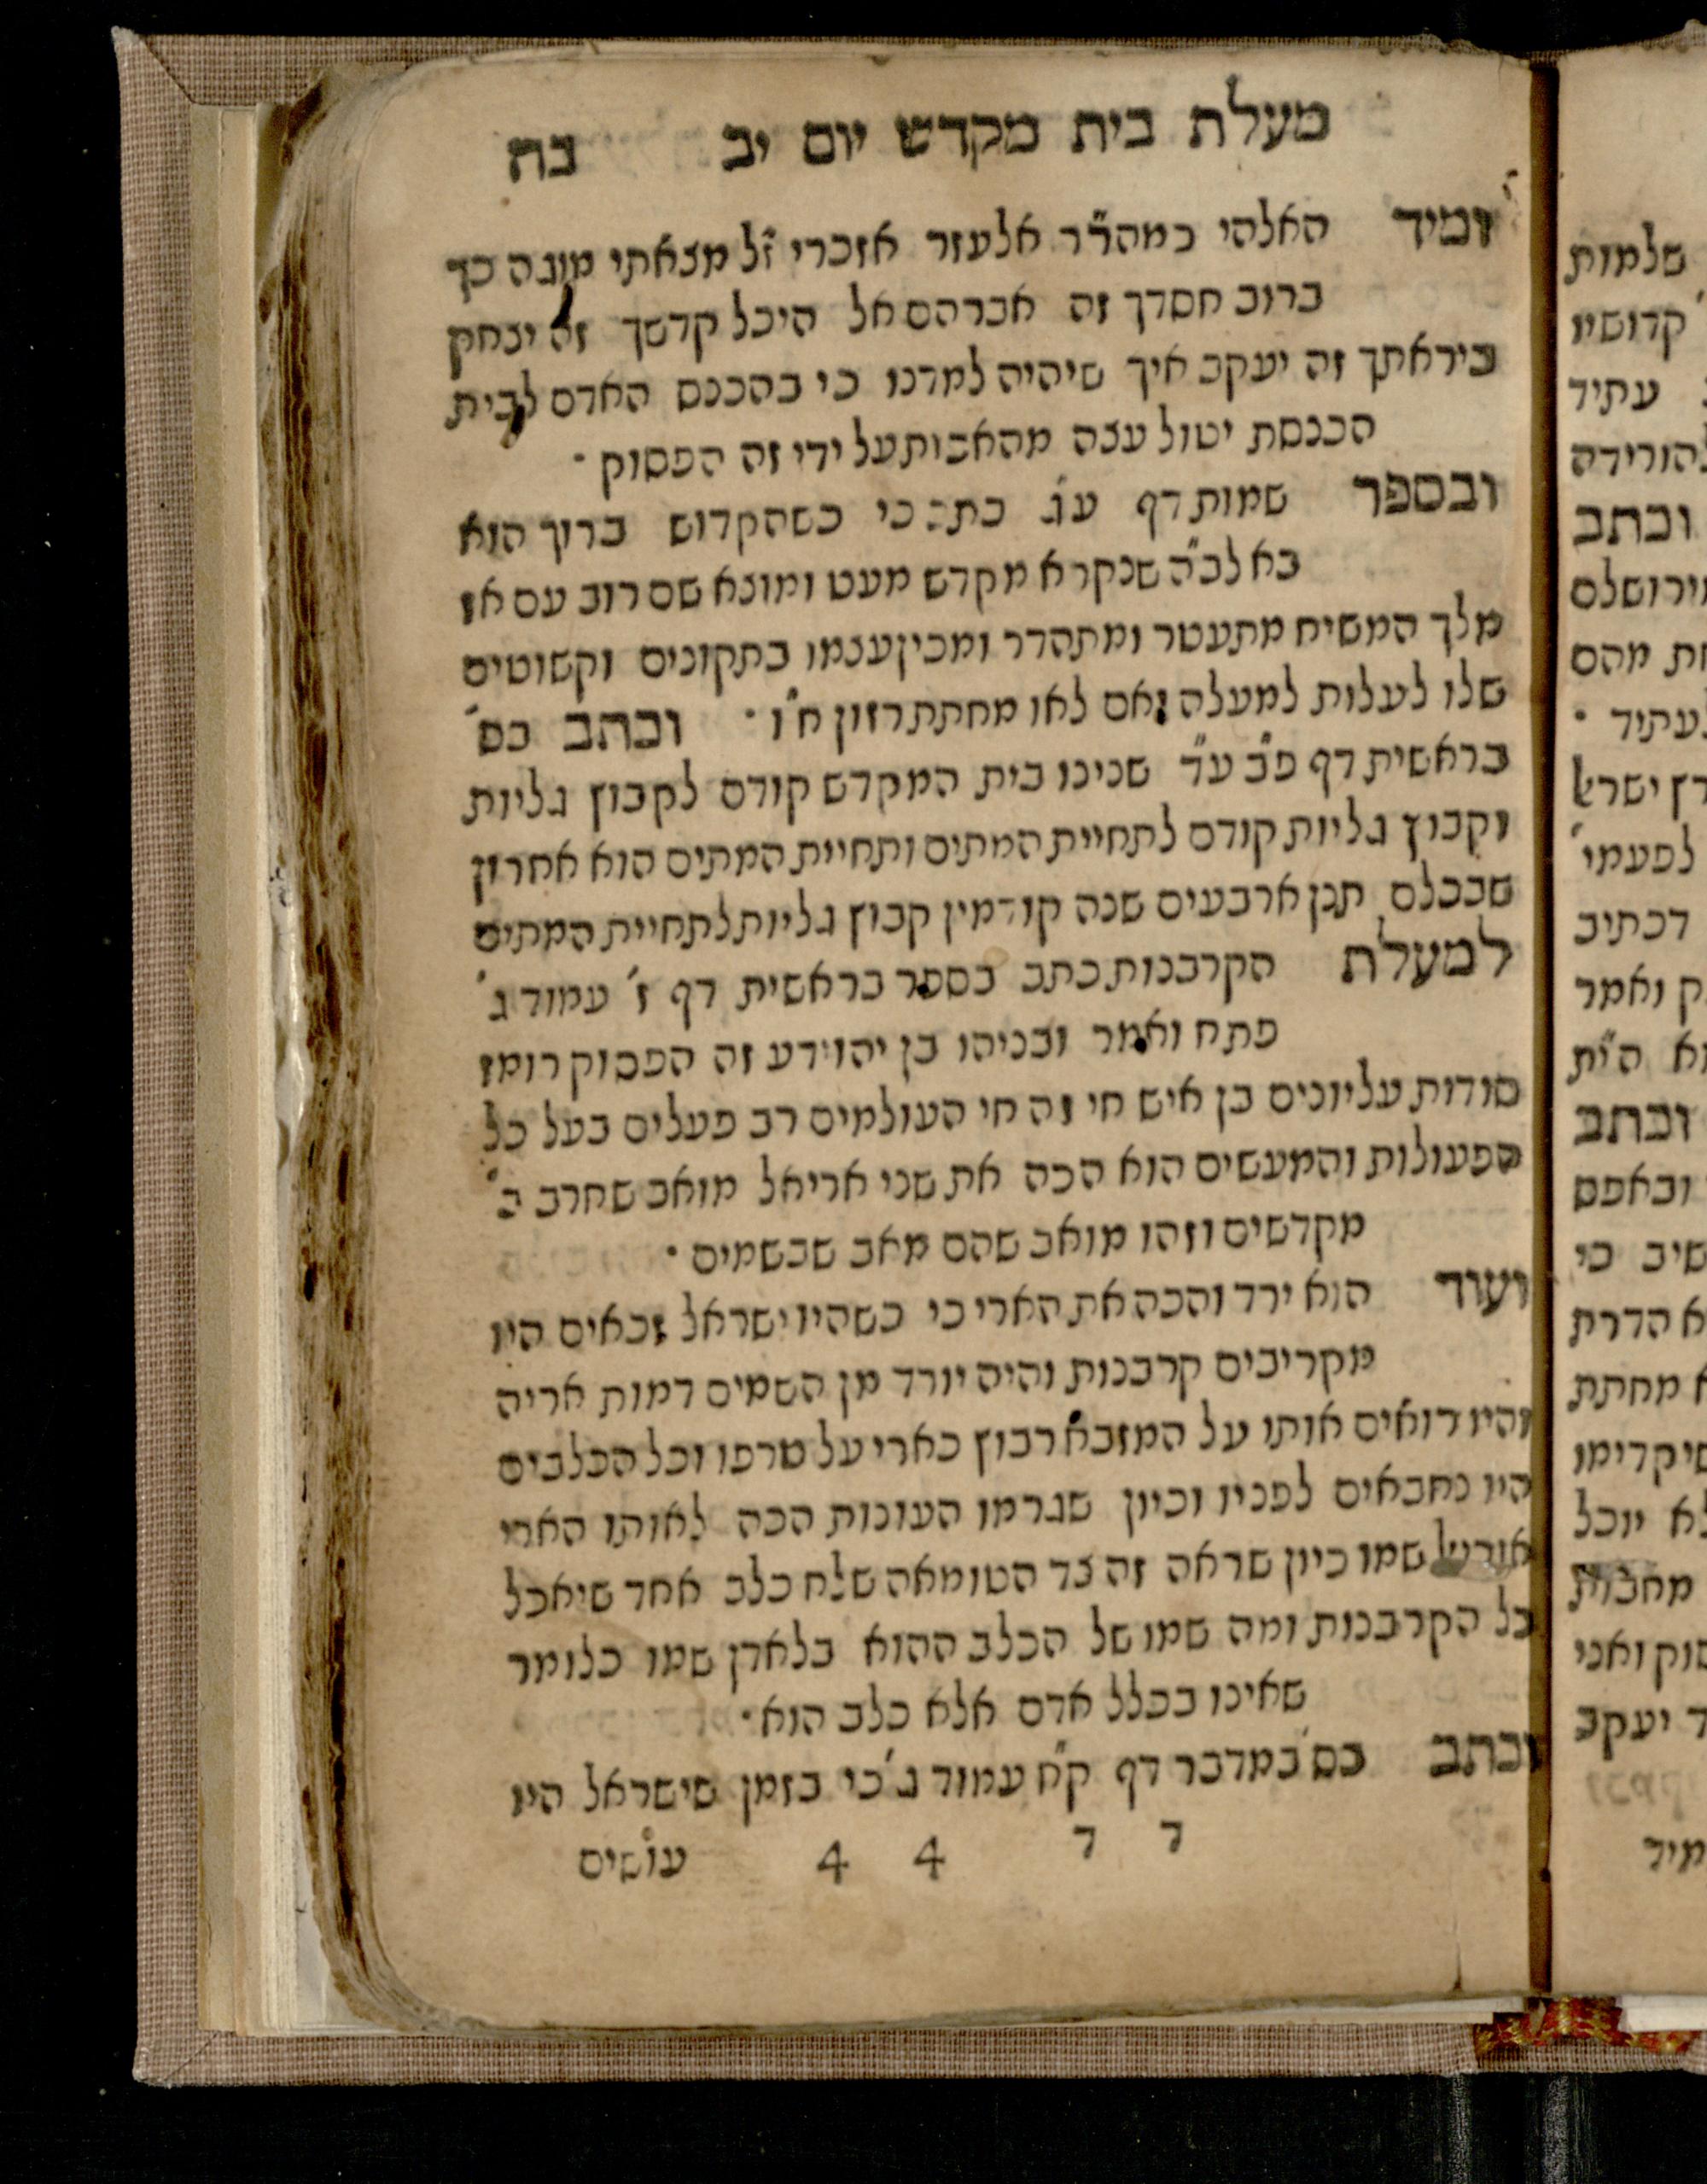 מעלת בית מקדש יום יב כח
ומיד האלהי כמהר"ר אלעזר אזכרי ז"ל מצאתי מוגה כך
ברוב חסדך זה אברהם אל היכל קדשך זה יצחק
ביראתך זה יעקב איך שיהיה למדנו כי בהכנס האדם לבית
הכנסת יטול עצה מהאבות על ידי זה הפסוק ·
ובספר שמות דף כתב כי כשהקדוש ברוך הוא
בא לב"ה שנקרא מקדש מעט ומוצא שם רוב עם אז
מלך המשיח מתעטר ומתהדר ומכין עצמו בתקונים וקשוטים
שלו לעלות למעלה ואם לאו מחתת רזון ח"ו · וכתב בס'
בראשית דף פ"ב ע"ד שבינו בית המקדש קודם לקבוץ גליות
וקבוץ גליות קודם לתחיית המתים ותחיית המתים הוא אחרון
שבכלם תנן ארבעים שנה קודמין קבוץ גליות לתחיית המתים
למעלת הקרבנות כתב בספר בראשית דף ז' עמוד ג'
פתח ואמר ובניהו בן יהוידע זה הפסוק רומז
סודות עליונים בן איש חי זה חי העולמים רב פעלים בעל כל
הפעולות והמעשים הוא הכה את שני אריאל מואב שחרב ב'
מקדשים וזהו מואב שהם מאב שבשמים ·
ועוד הוא ירד והכה את הארי כי כשהיו ישראל זכאים היו
מקריבים קרבנות והיה יורד מן השמים דמות אריה
והיו רואים אותו על המזבח רבוץ כארי על טרפו וכל הכלבים
היו נחבאים לפניו וכיון שגרמו העונות הכה לאותו הארי
אוריאל שמו כיון שראה זה צד הטומאה שלח כלב אחד שיאכל
כל הקרבנות ומה שמו של הכלב ההוא בלאדן שמו כלומר
שאינו בכלל אדם אלא כלב הוא ·
וכתב בס' במדבר דף ק"ח עמוד ג' כי בזמן שישראל היו
ד ד 4 4 עושים
שלמות
קדושיו
עתיד
להורידה
וכתב
ירושלם
מהם
לעתיד ·
ישרא
לפעמי'
דכתיב
ואמר
ה"ית
וכתב
ובאפס
כי
הדרת
מחתת
שיקדימו
יוכל
ואני
יעקב